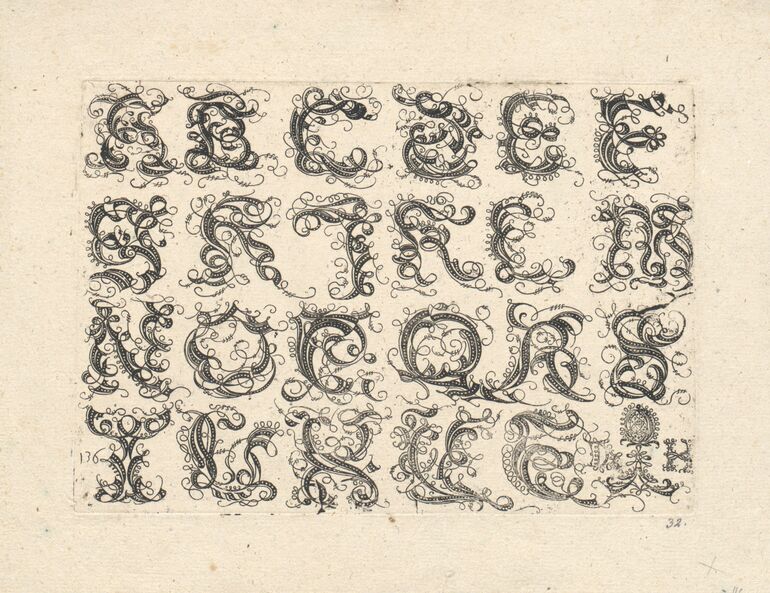 A B C D E F
G H I K L M
N O P Q R S
136 T V X Y Z
32.